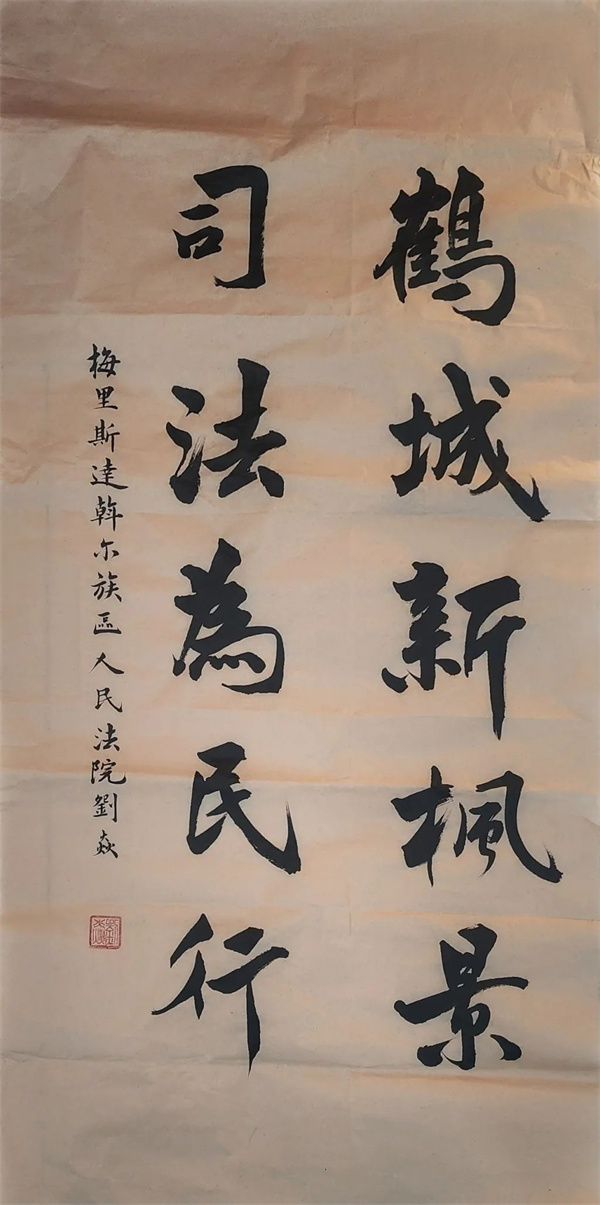 鶴城新楓景
司法為民行
梅里斯達斡尔族區人民法院劉焱